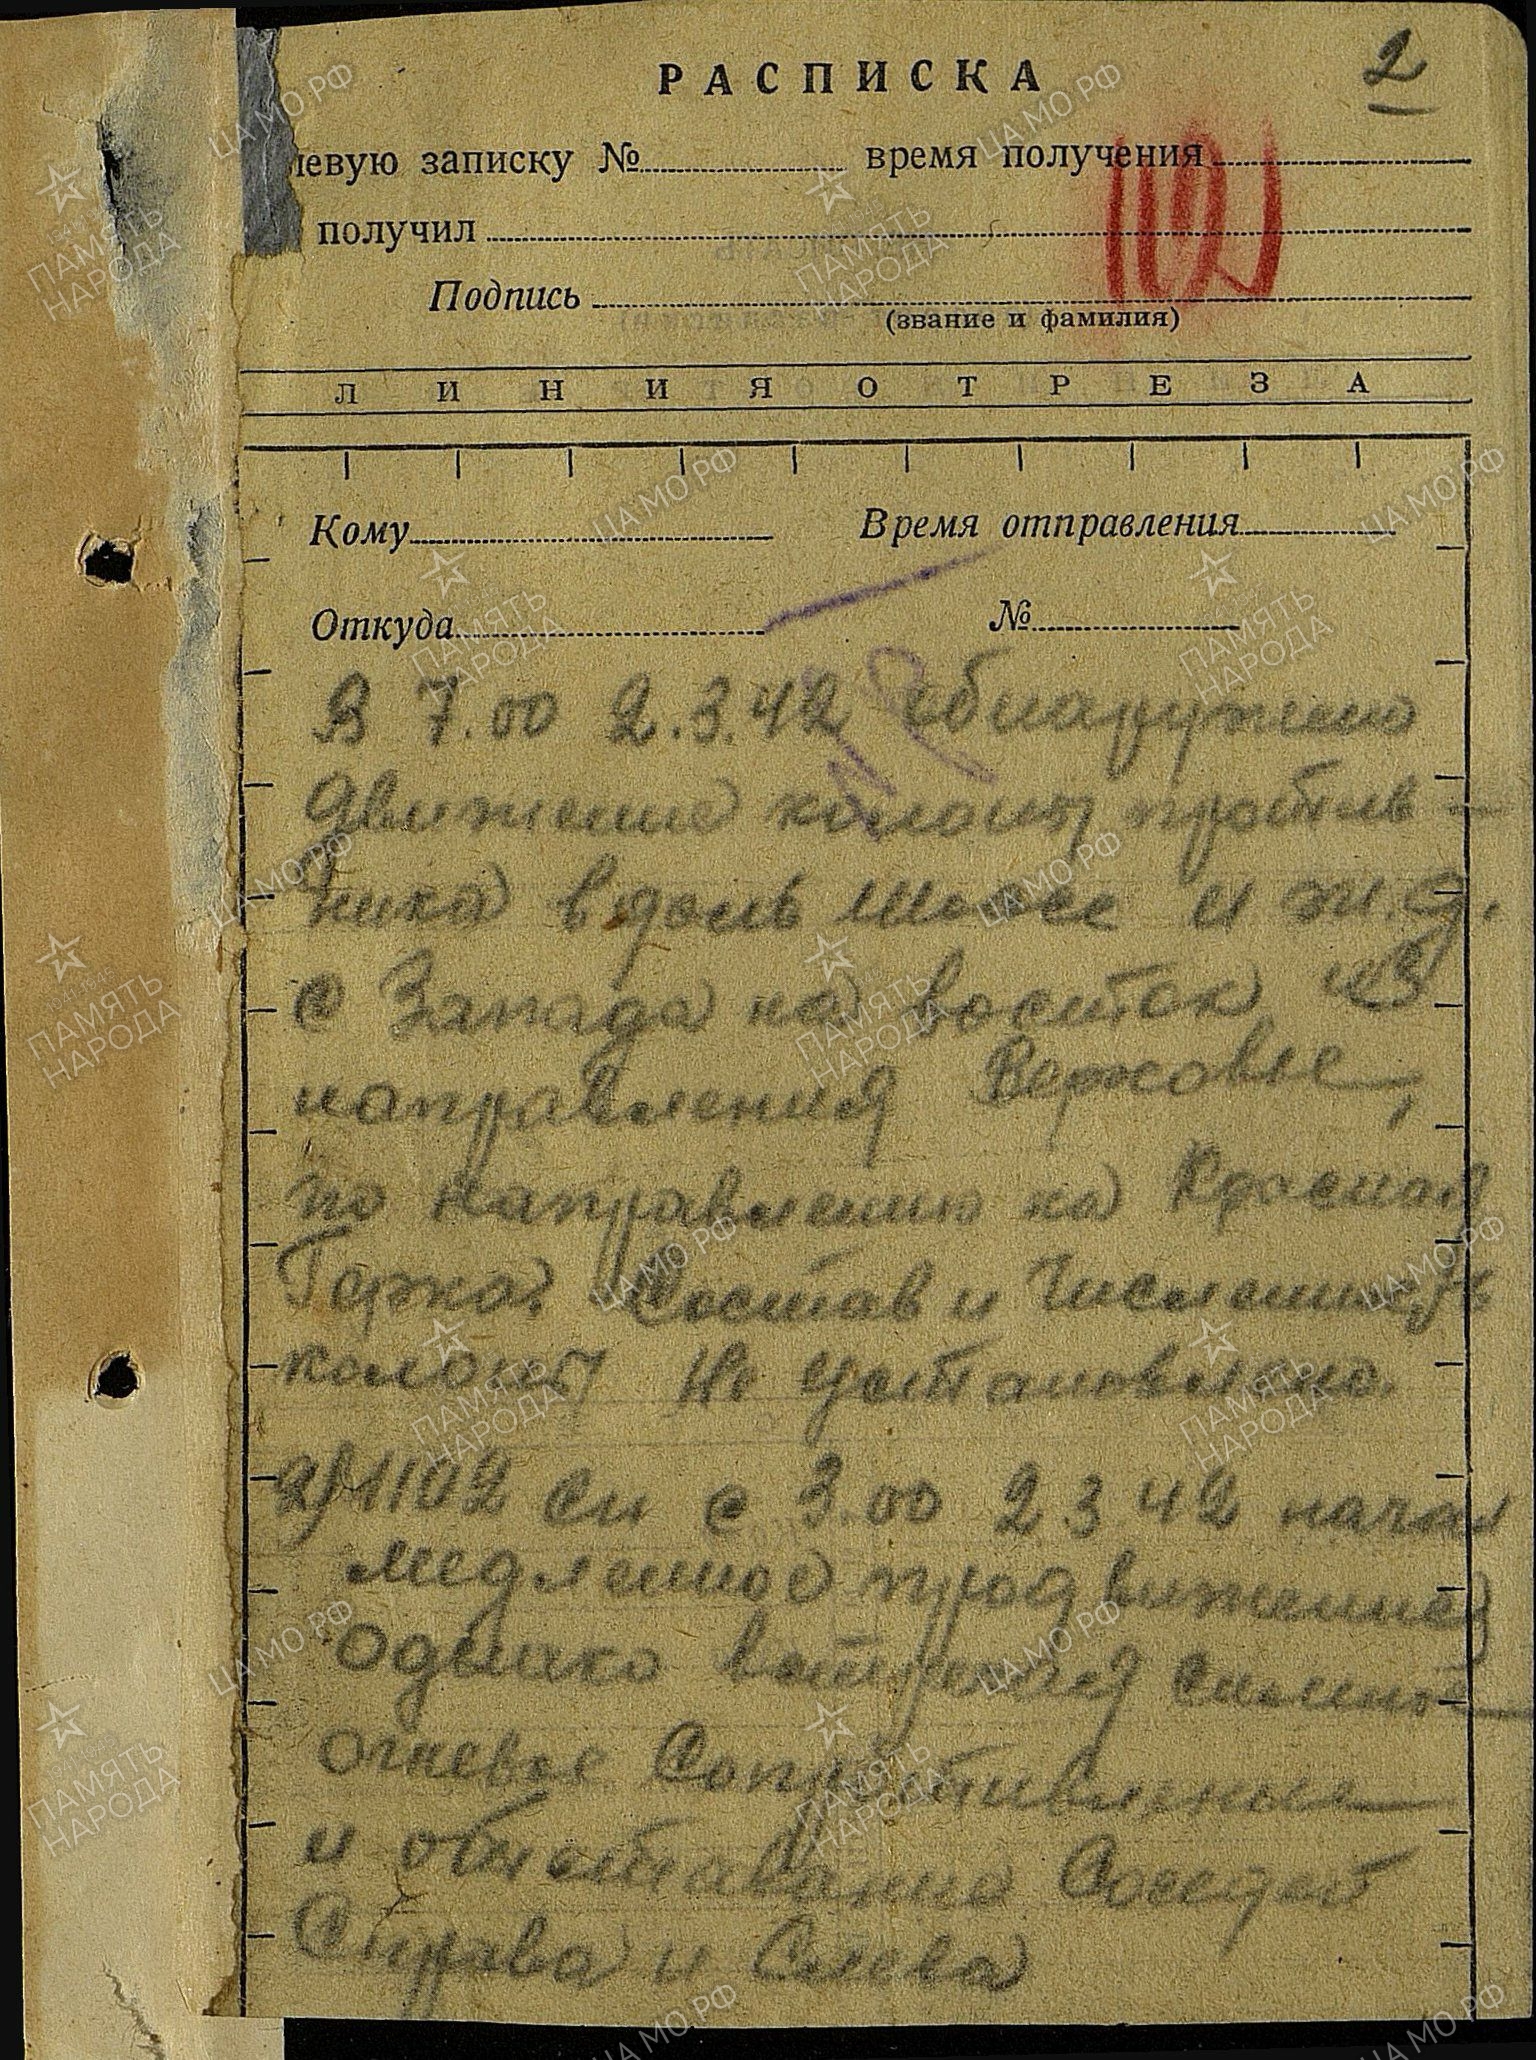 2
РАСПИСКА
левую записку № время получения
получил
Подпись
(звание и фамилия)
ЛИНИЯ ОТРЕЗА
Кому Время отправления
Откуда №
В 7.00 2.3.42 обнаружено
движение колонн против-
ника вдоль шоссе и ж.д.
с Запада на восток из
направления Верховье,
по направлению на Красная
Горка. Состав и численность
колонн не установлено.
2) 1102 сп с 3.00 2 3 42 начал
медленное продвижение
однако встречая сильное
огневое сопротивление
и отставание Соседей
Справа и Слева